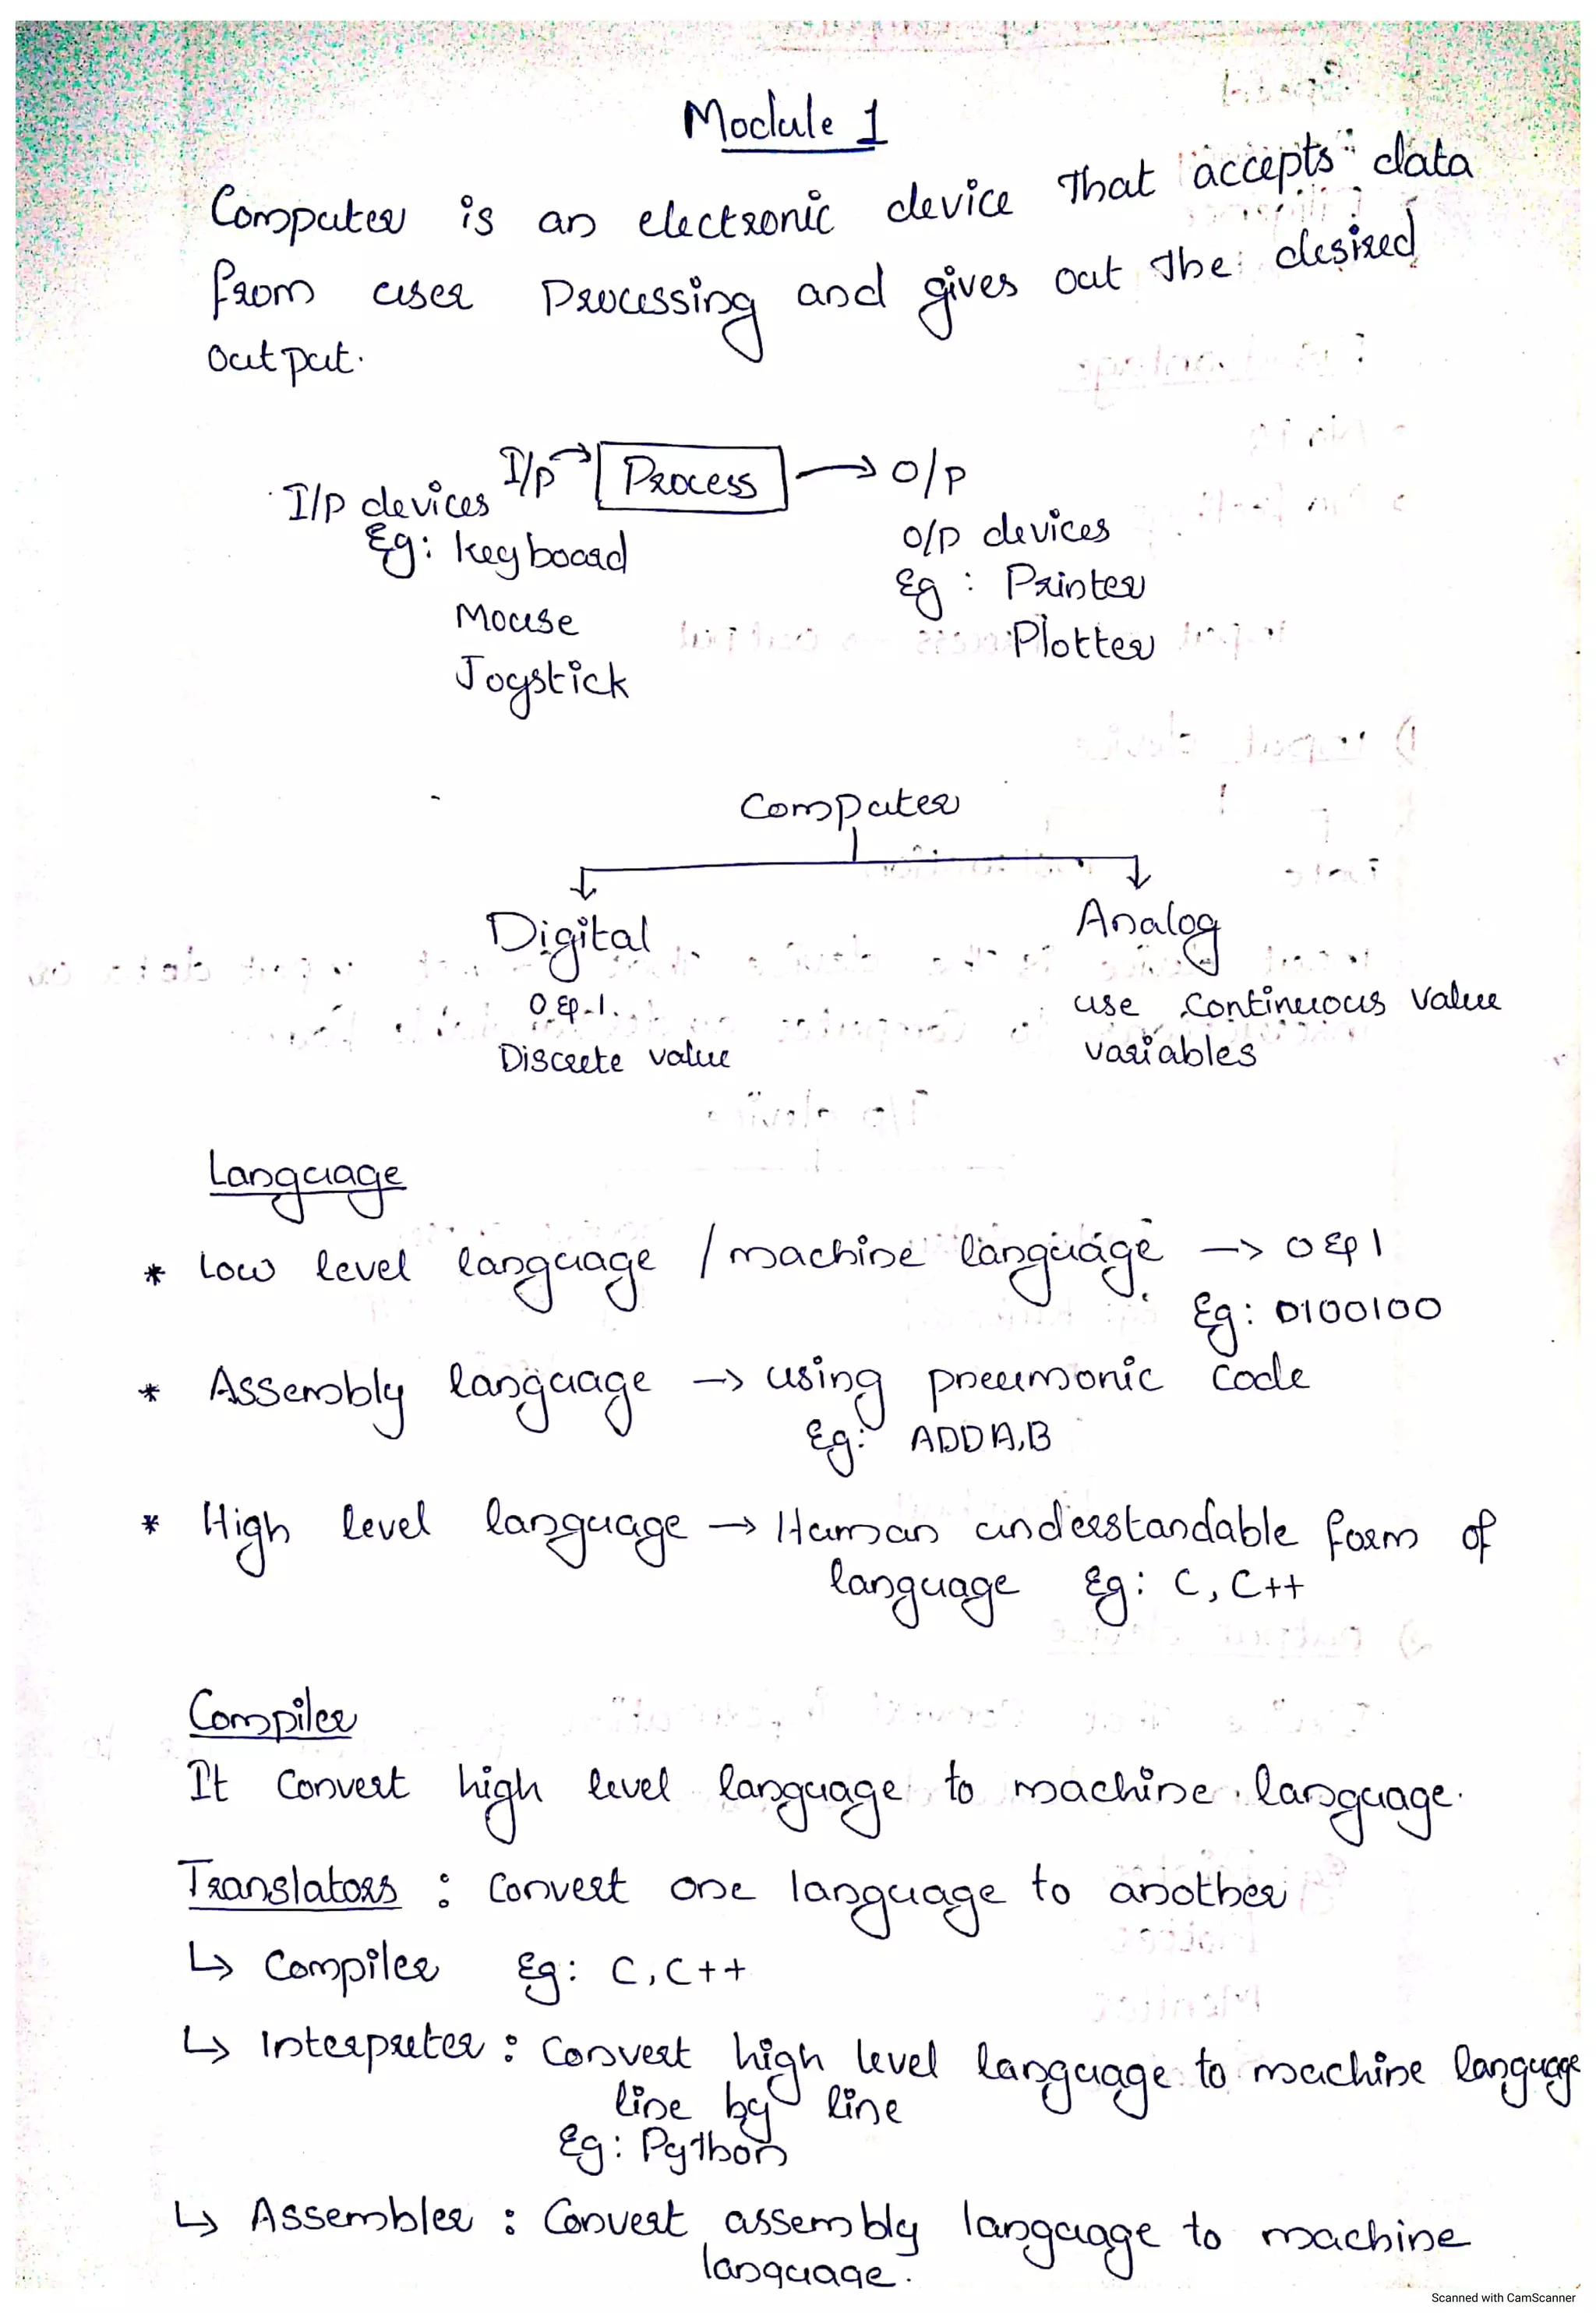 Module 1
Computer is an electronic device that accepts data
from user Processing and gives out the desired
output.
I/p → Process → O/p
I/p devices
Eg: keyboard
Mouse
Joystick
O/p devices
Eg : Printer
Plotter
Computer
Digital
0 & 1.
Discrete value
Analog
use Continuous value
variables
Language
* Low level language / machine language → 0 & 1
Eg: 0100100
* Assembly language → using pneumonic code
Eg: ADD A,B
* High level language → Human understandable form of
language Eg: C, C++
Compiler
It Convert high level language to machine language.
Translators : Convert one language to another
↳ Compiler Eg: C, C++
↳ Interpreter : Convert high level language to machine language
line by line
Eg: Python
↳ Assembler : Convert assembly language to machine
language.
Scanned with CamScanner